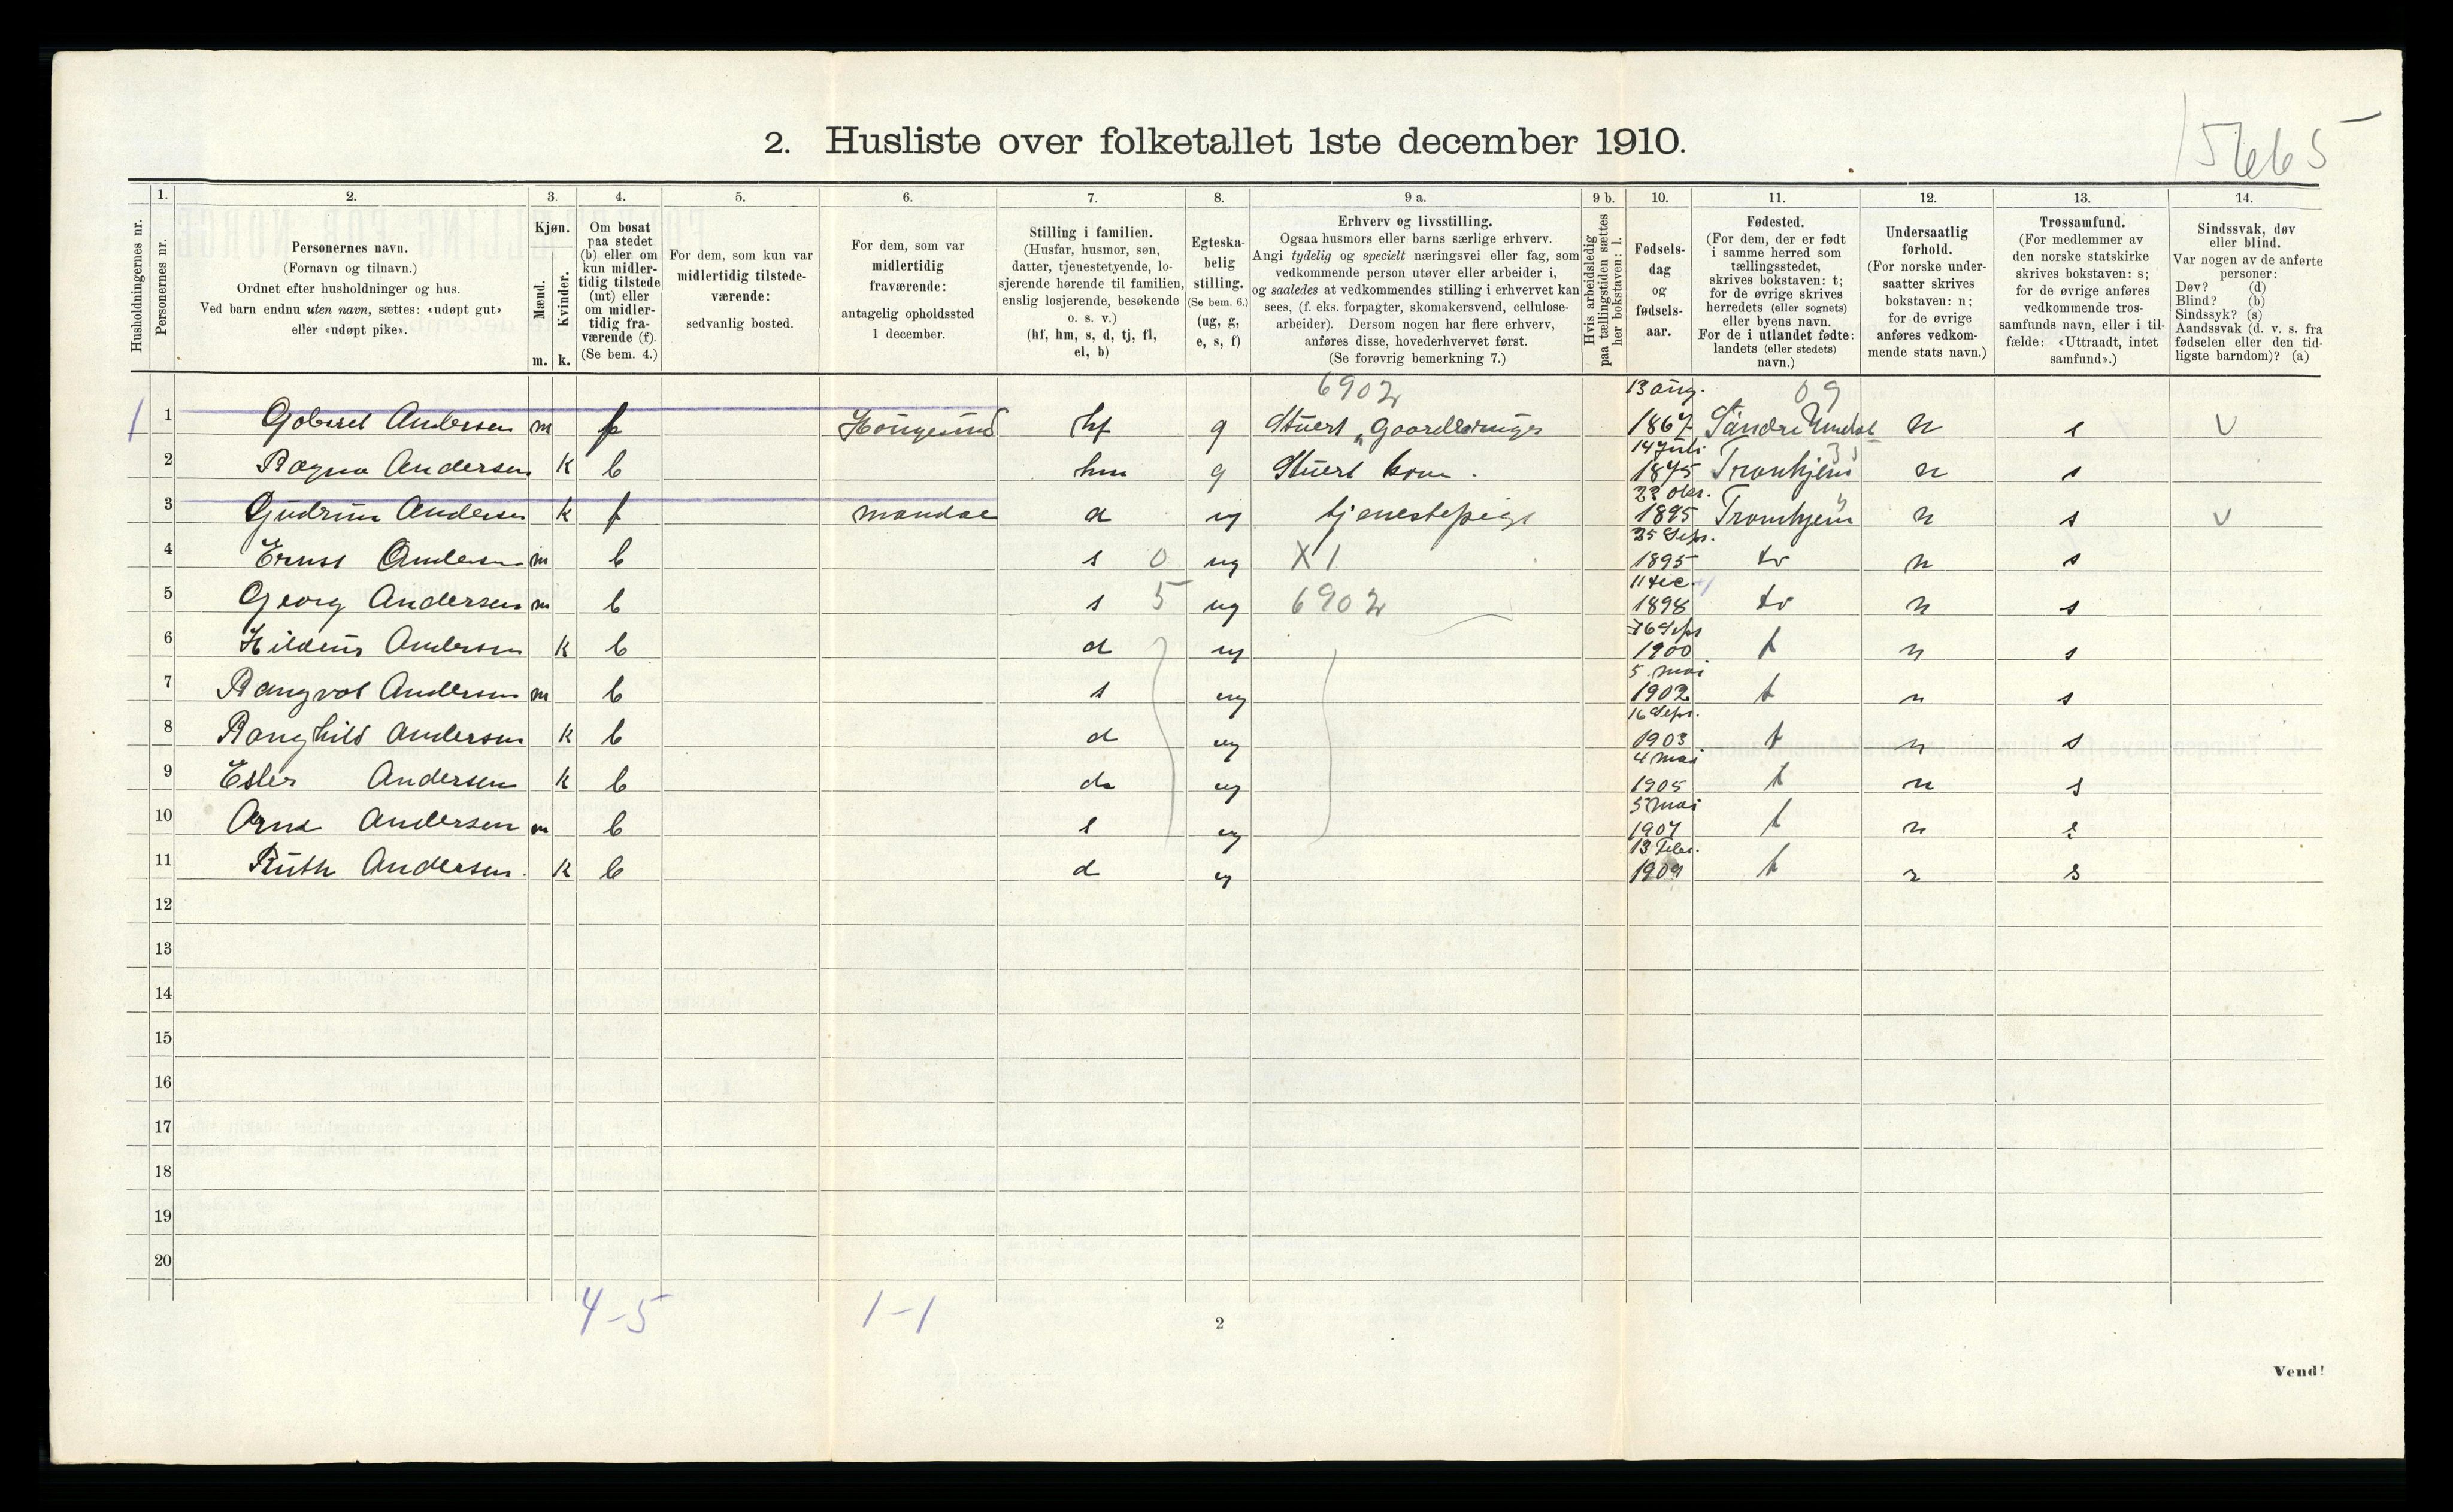 15665
2. Husliste over folketallet 1ste december 1910.
Husholdningernes nr.
1. Personernes nr.
2. Personernes navn.
(Fornavn og tilnavn.)
Ordnet efter husholdninger og hus.
Ved barn endnu uten navn, sættes: «udøpt gut»
eller «udøpt pike».
3. Kjøn.
Mænd. m.
Kvinder. k.
4. Om bosat
paa stedet
(b) eller om
kun midler-
tidig tilstede
(mt) eller
om midler-
tidig fra-
værende (f).
(Se bem. 4.)
5. For dem, som kun var
midlertidig tilstede-
værende:
sedvanlig bosted.
6. For dem, som var
midlertidig
fraværende:
antagelig opholdssted
1 december.
7. Stilling i familien.
(Husfar, husmor, søn,
datter, tjenestetyende, lo-
sjerende hørende til familien,
enslig losjerende, besøkende
o. s. v.)
(hf, hm, s, d, tj, fl,
el, b)
8. Egteska-
belig
stilling.
(Se bem. 6.)
(ug, g,
e, s, f)
9 a. Erhverv og livsstilling.
Ogsaa husmors eller barns særlige erhverv.
Angi tydelig og specielt næringsvei eller fag, som
vedkommende person utøver eller arbeider i,
og saaledes at vedkommendes stilling i erhvervet kan
sees, (f. eks. forpagter, skomakersvend, cellulose-
arbeider). Dersom nogen har flere erhverv,
anføres disse, hovederhvervet først.
(Se forøvrig bemerkning 7.)
9 b. Hvis arbeidsledig
paa tællingstiden sættes
her bokstaven: l.
10. Fødsels-
dag
og
fødsels-
aar.
11. Fødested.
(For dem, der er født
i samme herred som
tællingsstedet,
skrives bokstaven: t;
for de øvrige skrives
herredets (eller sognets)
eller byens navn.
For de i utlandet fødte:
landets (eller stedets)
navn.)
12. Undersaatlig
forhold.
(For norske under-
saatter skrives
bokstaven: n;
for de øvrige
anføres vedkom-
mende stats navn.)
13. Trossamfund.
(For medlemmer av
den norske statskirke
skrives bokstaven: s;
for de øvrige anføres
vedkommende tros-
samfunds navn, eller i til-
fælde: «Uttraadt, intet
samfund».)
14. Sindssvak, døv
eller blind.
Var nogen av de anførte
personer:
Døv? (d)
Blind? (b)
Sindssyk? (s)
Aandssvak (d. v. s. fra
fødselen eller den tid-
ligste barndom)? (a)
6902 13 aug. 09
1 1 Andersen m f hf g Stuert 1867 n s V
2 Ragna Andersen k b hm g Stuert kone. 14 Juli 1875 Tronhjem n s
3 Gudrun Andersen k f mandal d ug tjenestepige 23 okt. 1895 Tronhjem n s V
4 Ernst Andersen m b s 0 ug X 1 25 Sept. 1895 do n s
5 Georg Andersen m b s 5 ug 6902 11 dec. 1898 do n s
6 Andersen k b d ug 1900 t n s
7 Rangval Andersen m b s ug 5 mai 1902 t n s
8 Ranghild Andersen k b d ug 16 Sept. 1903 t n s
9 Ester Andersen k b d ug 4 mai 1905 t n s
10 Arne Andersen m b s ug 5 mai 1907 t n s
11 Ruth Andersen. k b d ug 13 Febr. 1909 t n s
12
13
14
15
16
17
18
19
20
4-5 1-1
2
Vend!